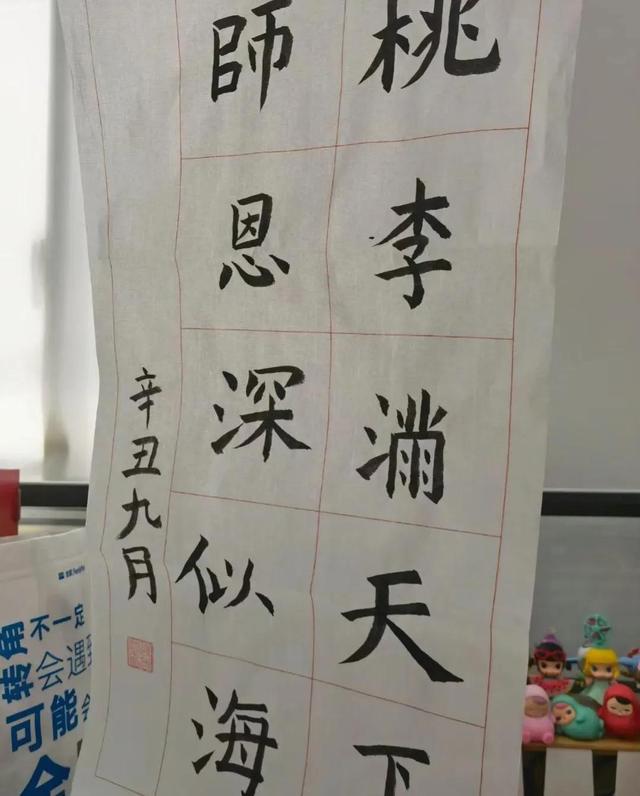 桃李満天下
師恩深似海
辛丑九月
转角
不一定
会遇到
可能会